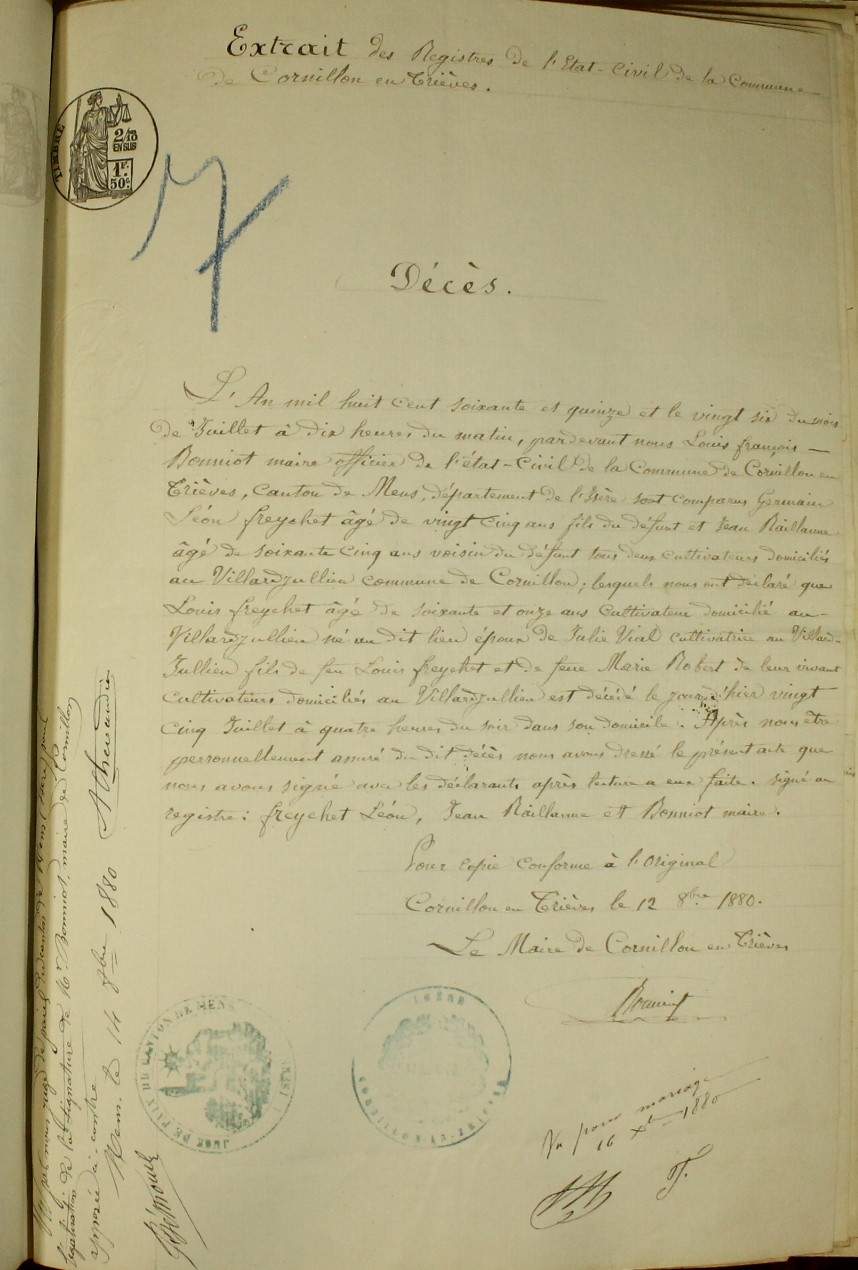 Extrait des Registres de l'Etat-Civil de la Commune
de Cornillon en Trièves.
TIMBRE
2/10
EN SUS
1F.
50c.
7
Décès.
L'An mil huit cent soixante et quinze et le vingt six du mois
de Juillet à dix heures du matin, pardevant nous Louis françois
Bonniot maire officier de l'état-Civil de la Commune de Cornillon en
Trièves, Canton de Mens, département de l'Isère sont comparus Germain
Léon freychet âgé de vingt cinq ans fils du défunt et Jean Raillanne
âgé de soixante cinq ans voisin du défunt tous deux cultivateurs domiciliés
au Villardjullien commune de Cornillon; lesquels nous ont déclaré que
Louis freychet âgé de soixante et onze ans cultivateur domicilié au
Villardjullien né au dit lieu époux de Julie Vial cultivatrice au Villard-
Jullien fils de feu Louis freychet et de feue Marie Robert de leur vivant
cultivateurs domiciliés au Villardjullien est décédé le jour d'hier vingt
cinq Juillet à quatre heures du soir dans son domicile. Après nous être
personnellement assuré du dit décès nous avons dressé le présent acte que
nous avons signé avec les déclarants après lecture a eux faite. signé au
registre: freychet Léon, Jean Raillanne et Bonniot maire.
Pour copie conforme à l'Original
Cornillon en Trièves le 12 8bre 1880.
Le Maire de Cornillon en Trièves
Bonniot
JUGE DE PAIX DU CANTON DE MENS
ISÈRE
Vu pour mariage
16 Xbre 1880
Vu par nous juge de paix du canton de Mens
légalisation de la signature de Mr Bonniot, maire de Cornillon
apposée ci-contre
Mens le 14 8bre 1880